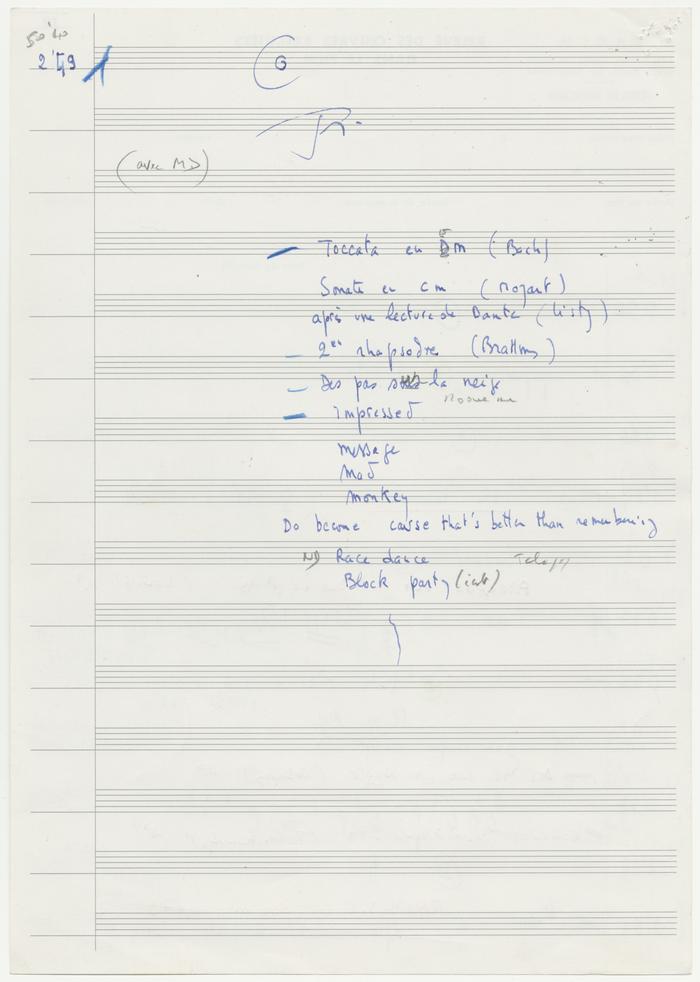 50'40
2'49
G
(avec MD)
Toccata en Dm (Bach)
Sonate en cm (Mozart)
après une lecture de Dante (Listz)
2er rhapsodie (Brahms)
Des pas sur la neige
impressed
message
Mad
monkey
Do become cause that's better than remembering
Race dance
Block party